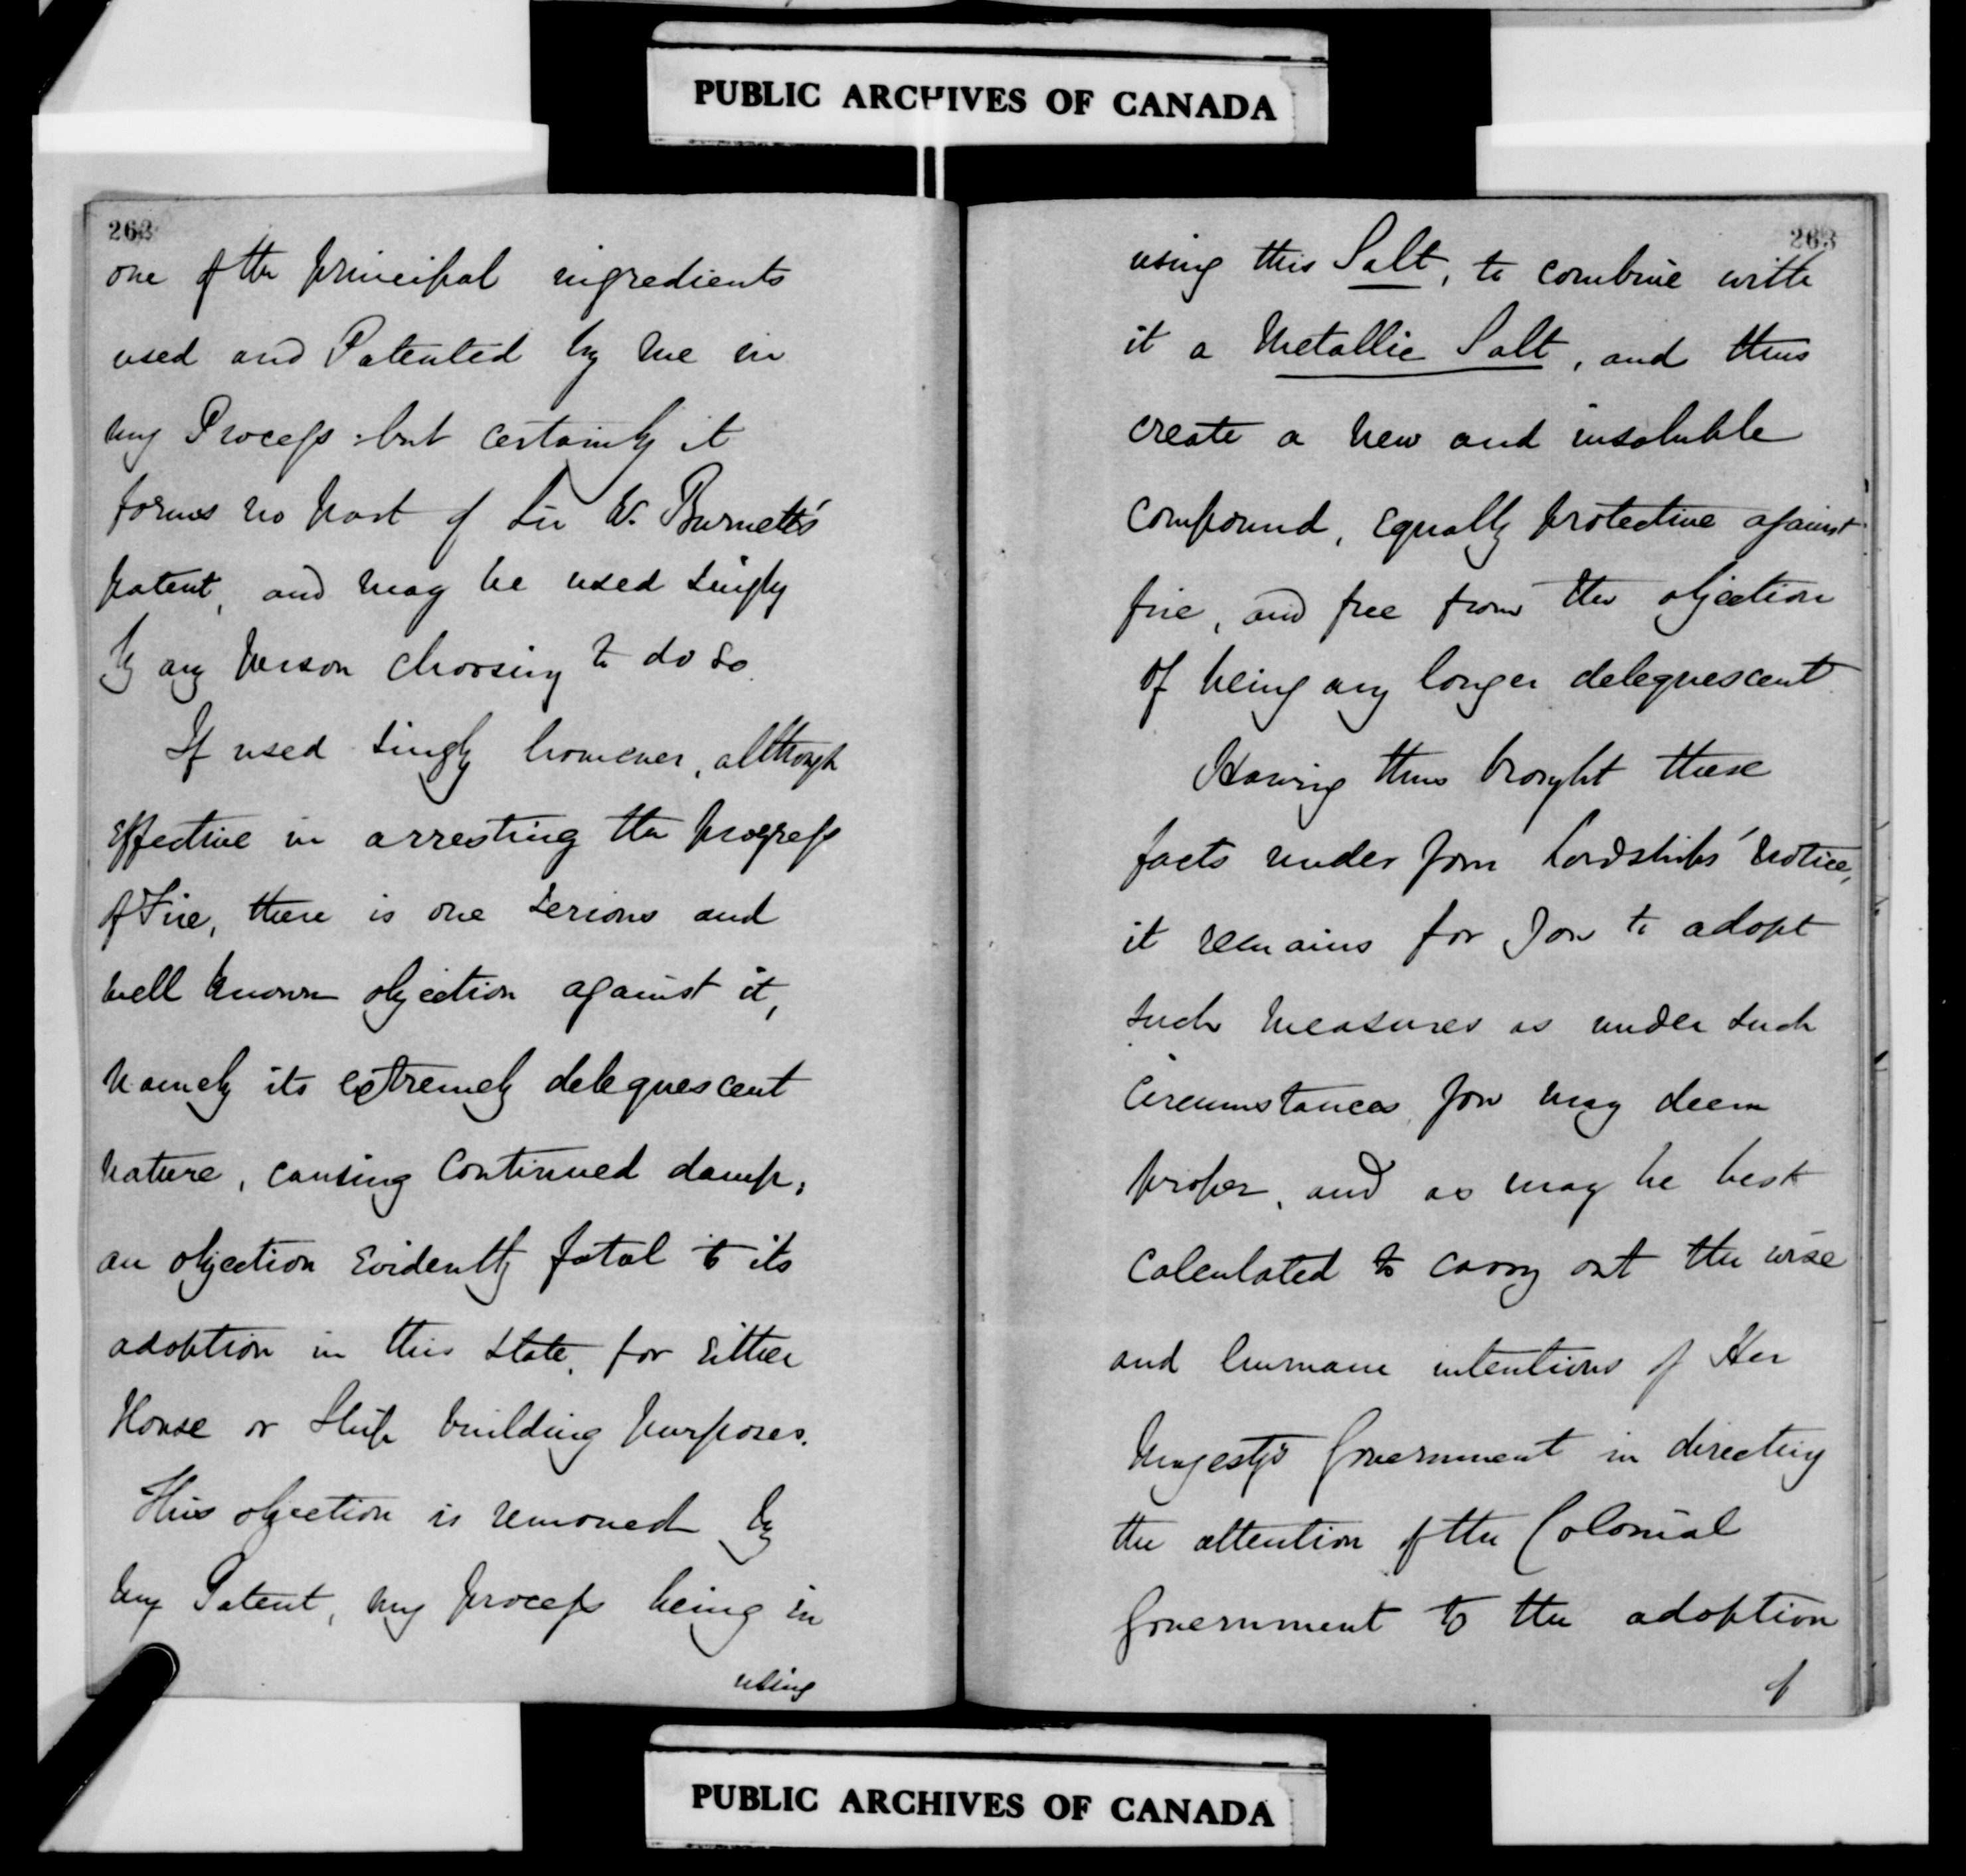 PUBLIC ARCHIVES OF CANADA
262
one of the principal ingredients
used and Patented by me in
my Process : but certainly it
forms no part of Sir W. Burnett's
patent, and may be used singly
by any person choosing to do so.
If used singly however, although
effective in arresting the progress
of Fire, there is one serious and
well known objection against it,
namely its extremely delequescent
nature, causing continued damp,
an objection evidently fatal to its
adoption in this state, for either
House or Ship building purposes.
This objection is removed by
my Patent, my process being in
using
263
using this Salt, to combine with
it a Metallic Salt, and thus
create a new and insoluble
compound, equally protective against
fire, and free from the objection
of being any longer delequescent.
Having thus brought these
facts under your Lordships' notice,
it remains for you to adopt
such measures as under such
circumstances you may deem
proper, and as may be best
calculated to carry out the wise
and humane intentions of Her
Majesty's Government in directing
the attention of the Colonial
Government to the adoption
of
PUBLIC ARCHIVES OF CANADA